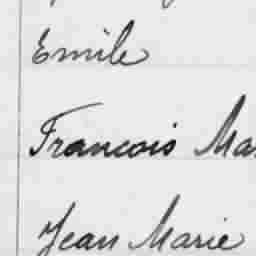 Emile
Francois Ma
Jean Marie